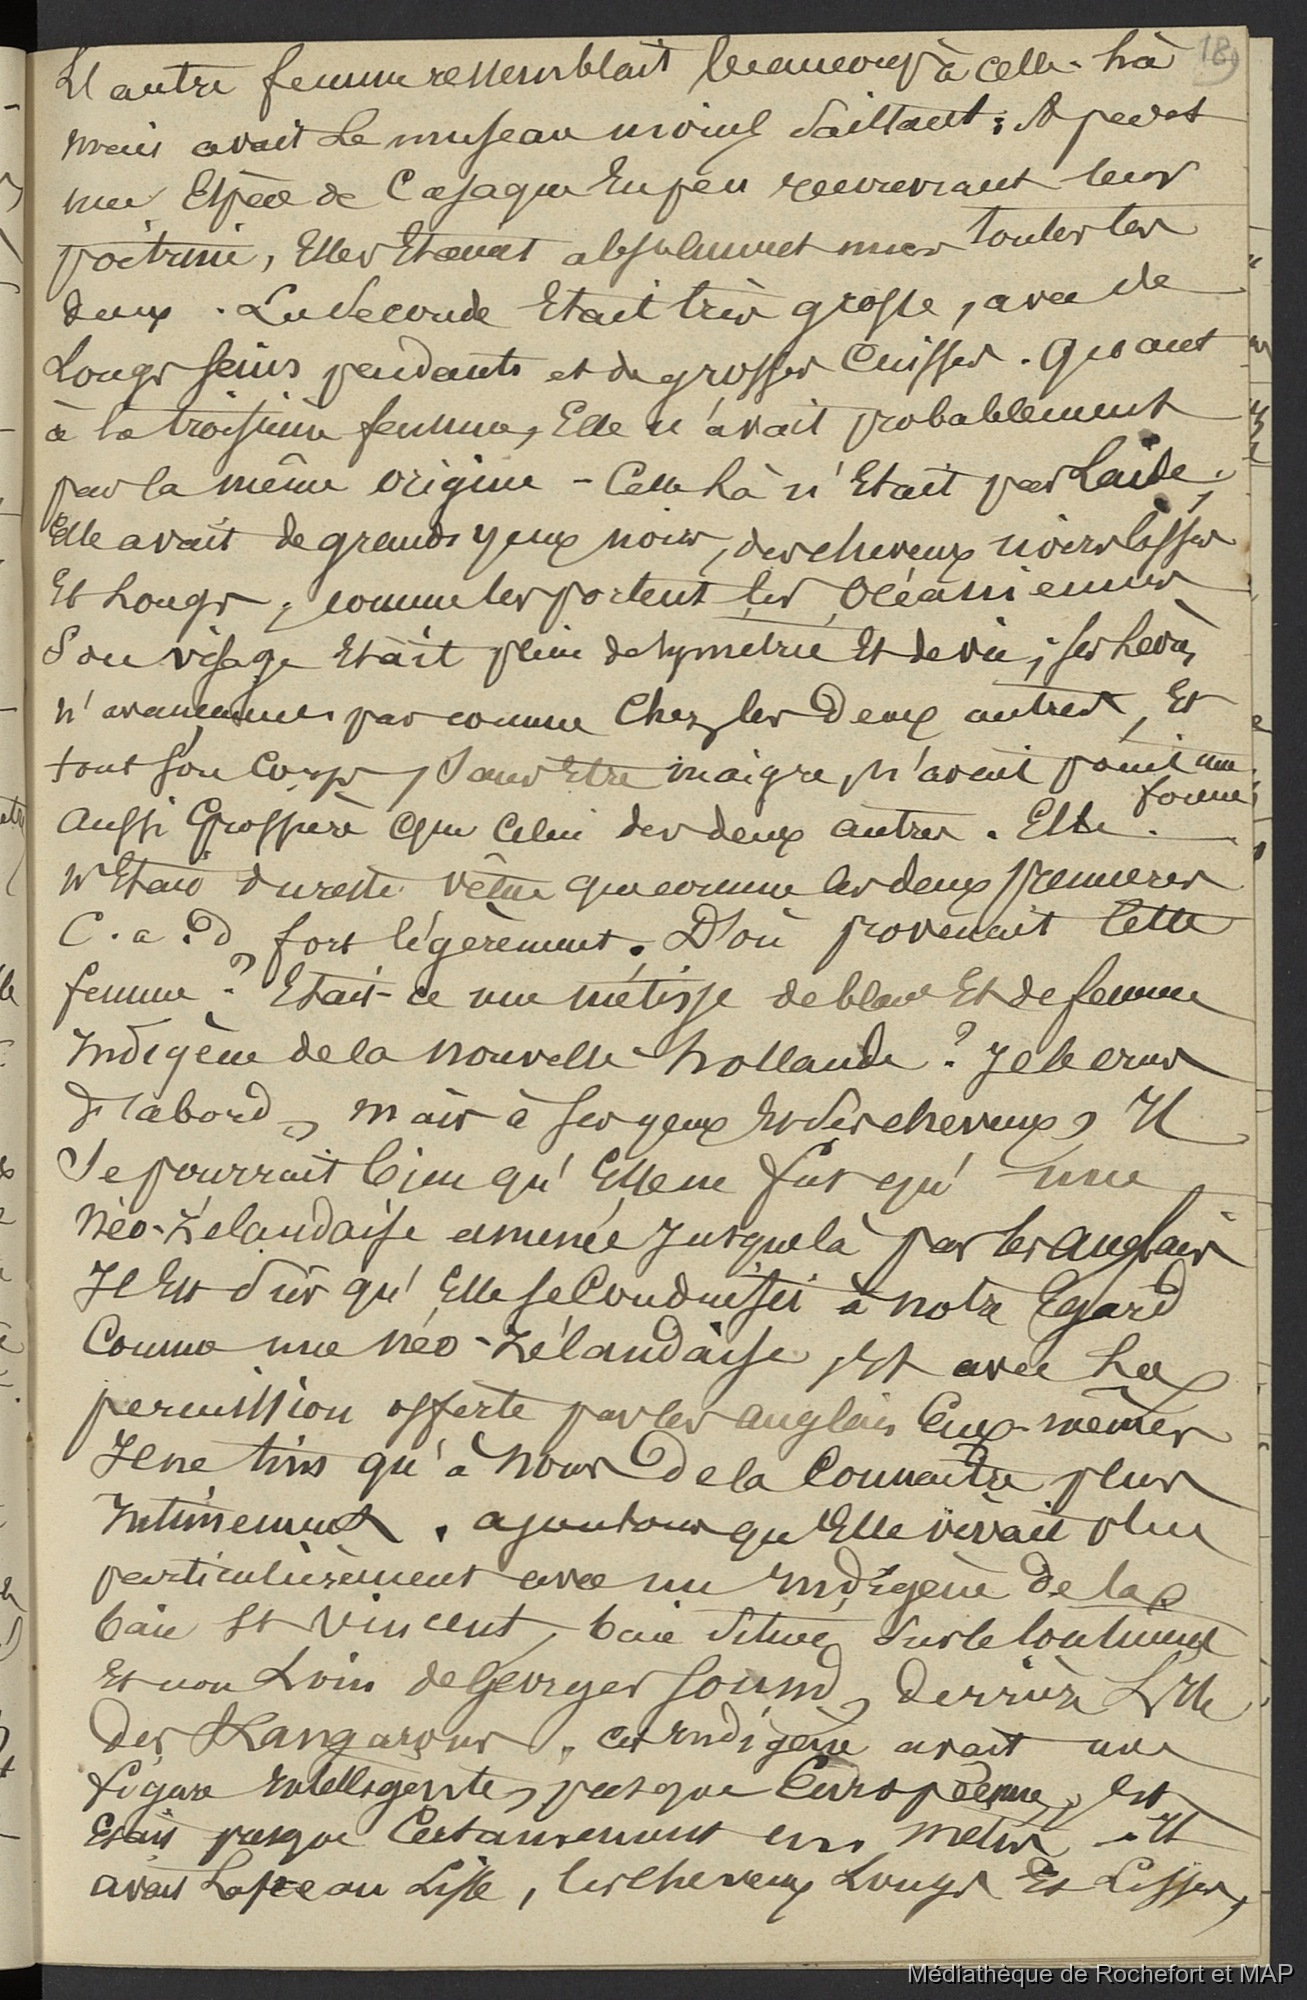 189
L'autre femme ressemblait beaucoup à celle-là
mais avait le museau moins saillant ; A part
une Espèce de Casaque En peau recouvrant leur
poitrine, Elles Etaient absolument nues toutes les
deux . La Seconde Etait très grosse, avec de
Longs seins pendants et de grosses Cuisses . Quant
à la troisième femme, Elle n'avait probablement
pas la même origine - Celle là n'Etait pas Laide ;
Elle avait de grands yeux noirs, des cheveux noirs lisses
Et Longs, comme les portent les Océaniennes
Son visage Etait plein de symétrie Et de vie, ; ses lèvres
n'avançaient pas comme Chez les Deux autres, Et
tout son Corps, Sans Etre maigre, n'avait point une
forme
aussi Grossière Que Celui des deux autres . Elle
n'Etait du reste vêtue que comme les deux premières
C. a. d, fort légèrement. D'où provenait Cette
femme ? Etait-ce une métisse de blanc Et de femme
Indigène de la nouvelle-hollande ? Je le crus
d'abord, mais à ses yeux Et Ses cheveux, Il
Se pourrait bien qu'Elle ne fut qu'une
Néo-Zélandaise amenée Jusque là par les anglais
Il Est Sûr qu'Elle se Conduisit à notre Egard
Comme une néo-Zélandaise, Et avec La
permission offerte par les anglais Eux-mêmes
Il ne tint qu'à nous De la Connaître plus
Intimement . ajoutons qu'Elle vivait plus
particulièrement avec un Indigène De la
baie St Vincent, baie Située Sur le Continent
Et non Loin de Georges Sound, Derrière L'Ile
Des Kangarous . cet Indigène avait une
figure Intelligente, presque Européenne, Et
Etait presque Certainement un métis . Il
avait La peau Lisse, les cheveux Longs Et Lisses,
Médiathèque de Rochefort et MAP